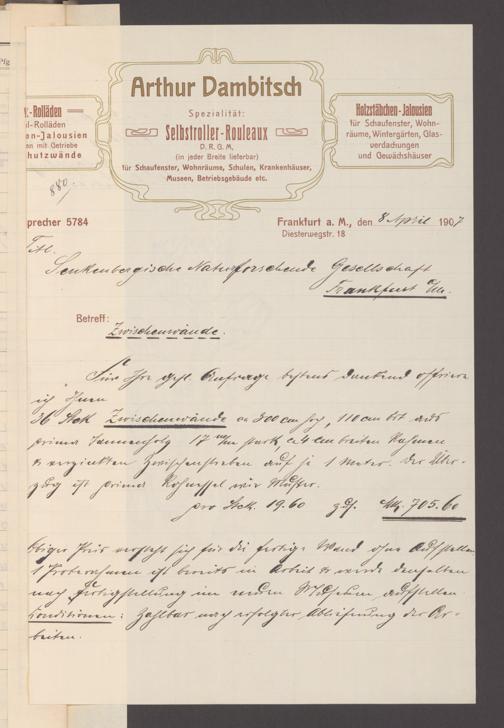 Pfg
Arthur Dambitsch
Spezialität:
Selbstroller-Rouleaux
D. R. G. M.
(in jeder Breite lieferbar)
für Schaufenster, Wohnräume, Schulen, Krankenhäuser,
Museen, Betriebsgebäude etc.
-Rolläden
-Rolladen
en-Jalousien
en mit Getriebe
chutzwände
Holzstäbchen-Jalousien
für Schaufenster, Wohn-
räume, Wintergärten, Glas-
verdachungen
und Gewächshäuser
880
precher 5784
Frankfurt a. M., den 8 April 1907
Diesterwegstr. 18
Titl.
Senkenbergische Naturforschende Gesellschaft
Frankfurt a/M.
Betreff:
Zwischenwände.
Für Ihre gefl. Anfrage bestens dankend offeriere
ich Ihnen
36 Stck Zwischenwände ca 300 cm hoch, 110 cm brt aus
prima Tannenholz 17 m/m stark, ca 4 cm breiten Rahmen
& verzinkten Zwischenstreben auf je 1 Meter. Der Über-
zug ist prima Rohnessel wie Muster.
pro Stck. 19.60 zus. Mk. 705.60
Obiger Preis versteht sich für die fertige Wand ohne Aufstellen
1 Proberahmen ist bereits in Arbeit & werde denselben
nach Fertigstellung im neuen Museum aufstellen.
Konditionen: Zahlbar nach erfolgter Ablieferung der Ar-
beiten.